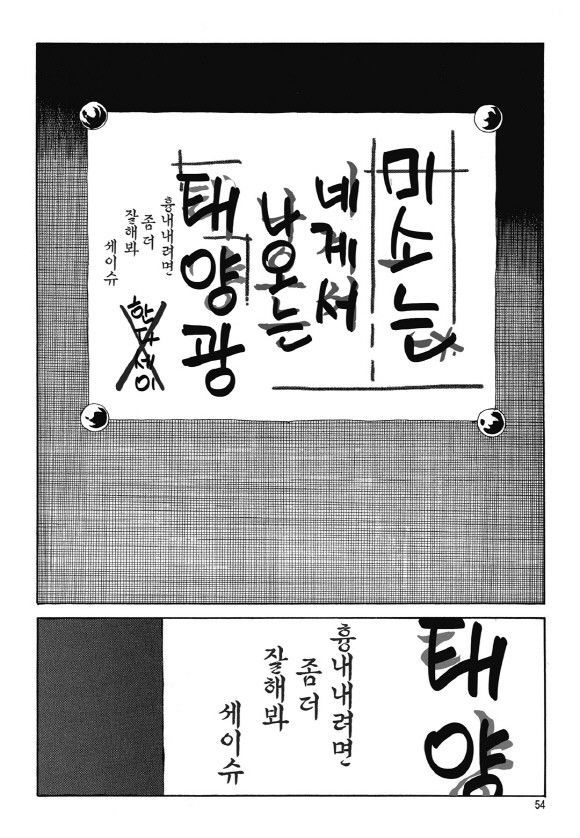 미소는
네게서
나오는
태양광
흉내내려면
좀 더
잘해봐
세이슈
태양
흉내내려면
좀 더
잘해봐
세이슈
54